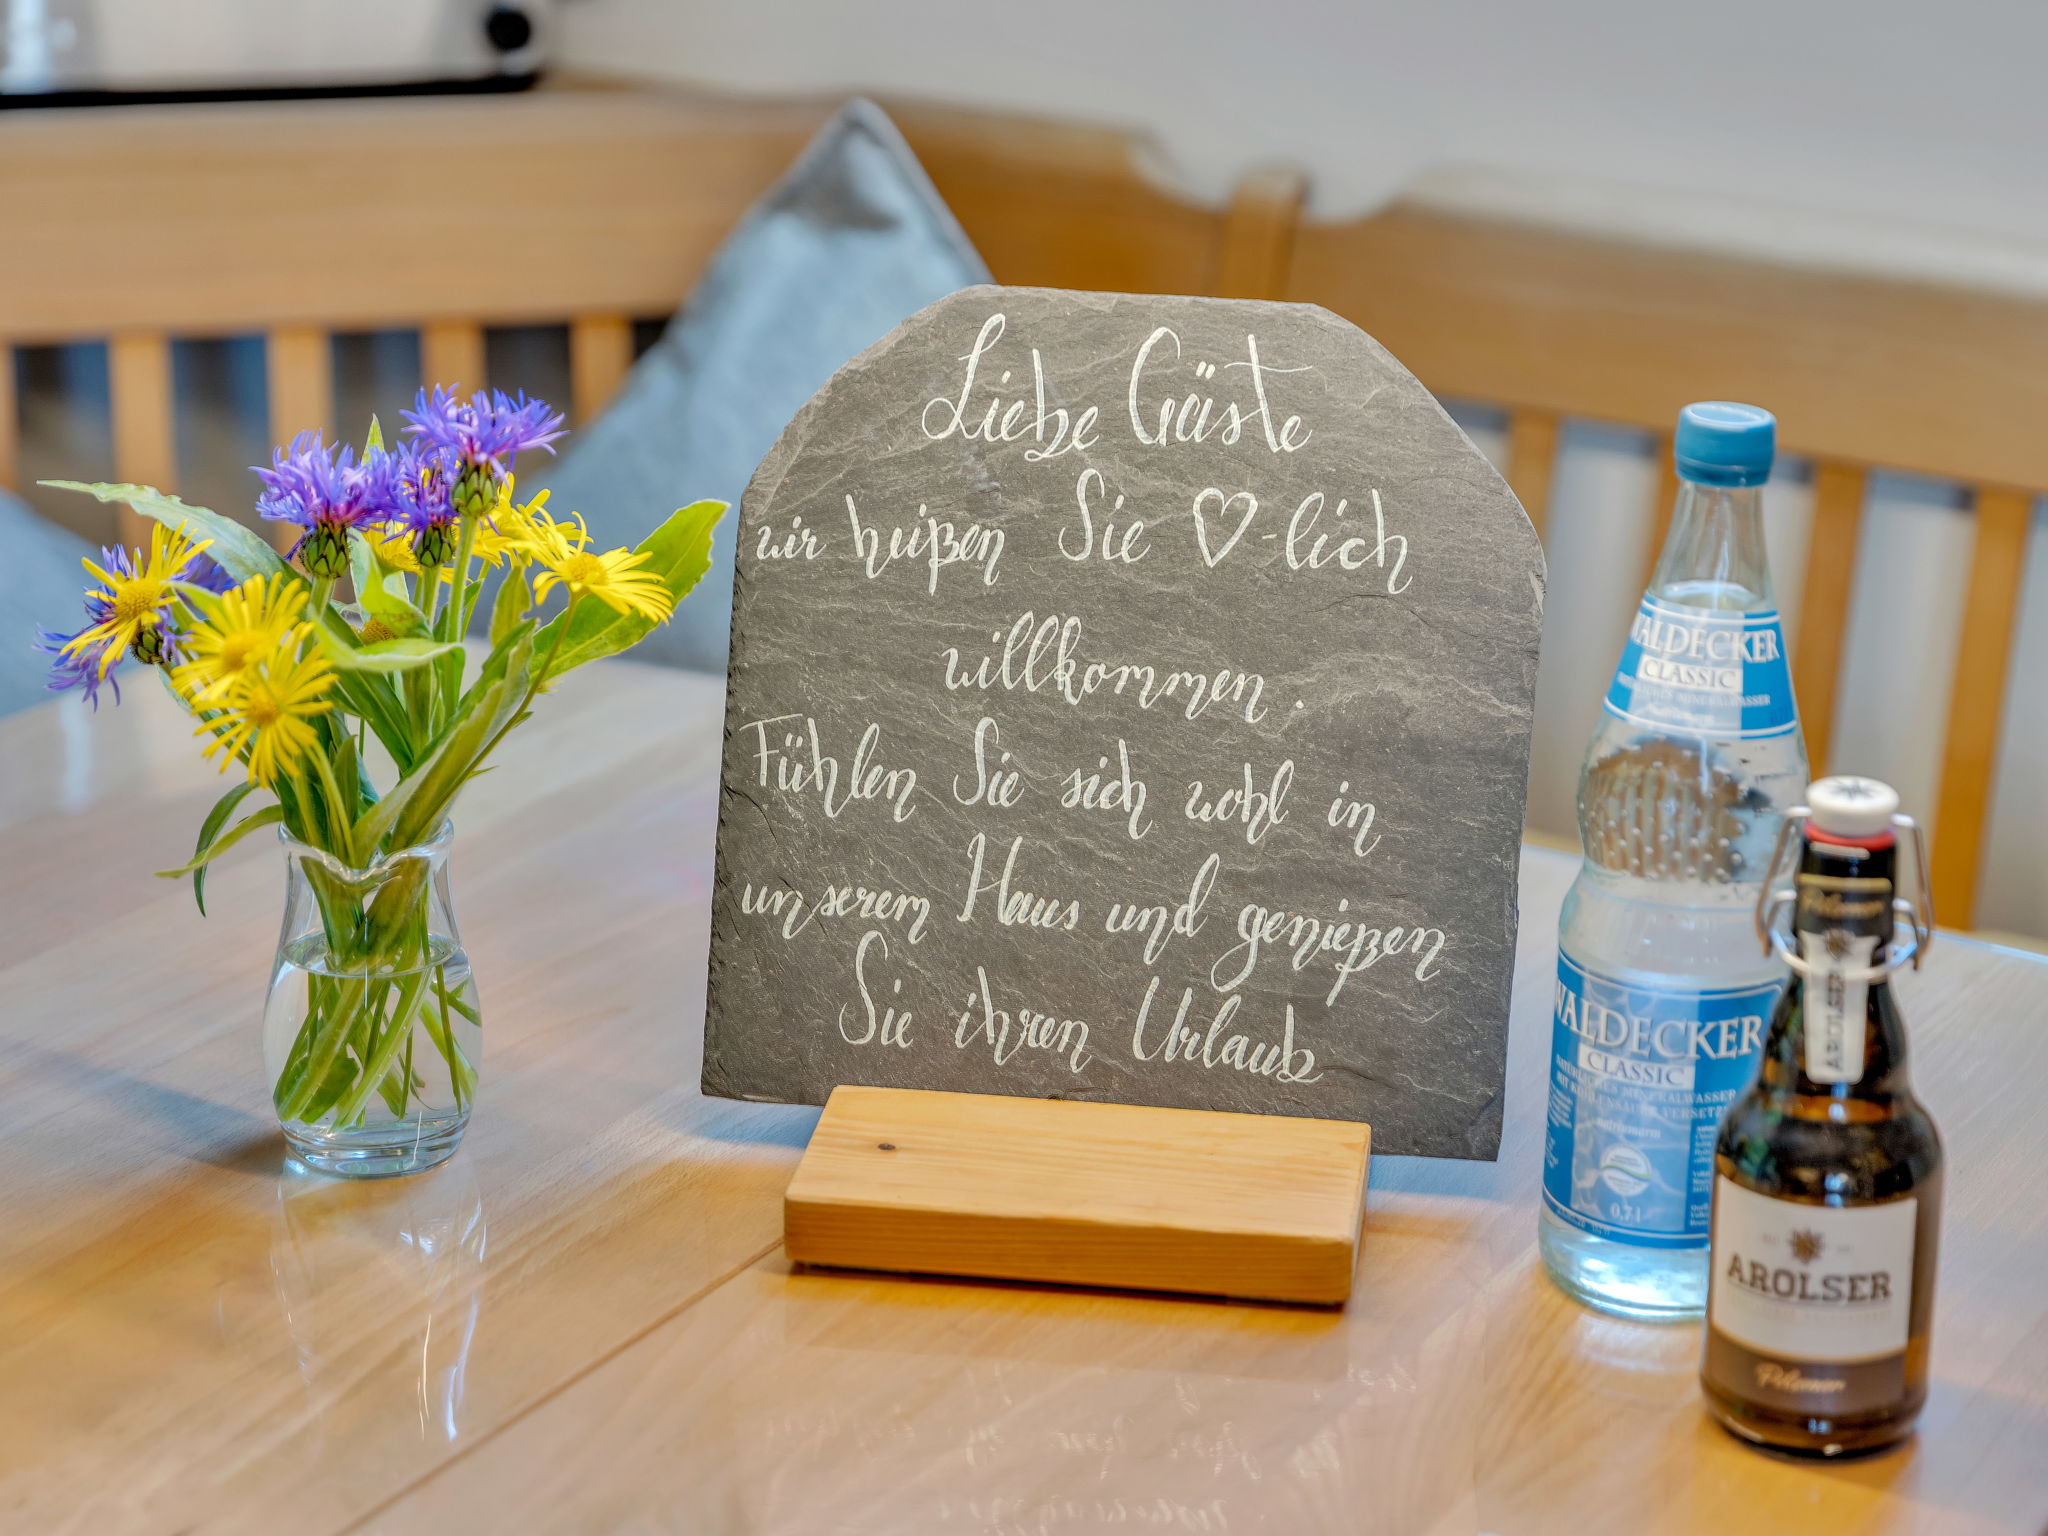 Liebe Gäste
wir heißen Sie ♡-lich
willkommen.
Fühlen Sie sich wohl in
unserem Haus und genießen
Sie ihren Urlaub
WALDECKER
CLASSIC
WALDECKER
CLASSIC
NATÜRLICHES MINERALWASSER
MIT KOHLENSÄURE VERSETZT
natriumarm
0,7 l
Pilsener
AROLSER
AROLSER
Pilsener